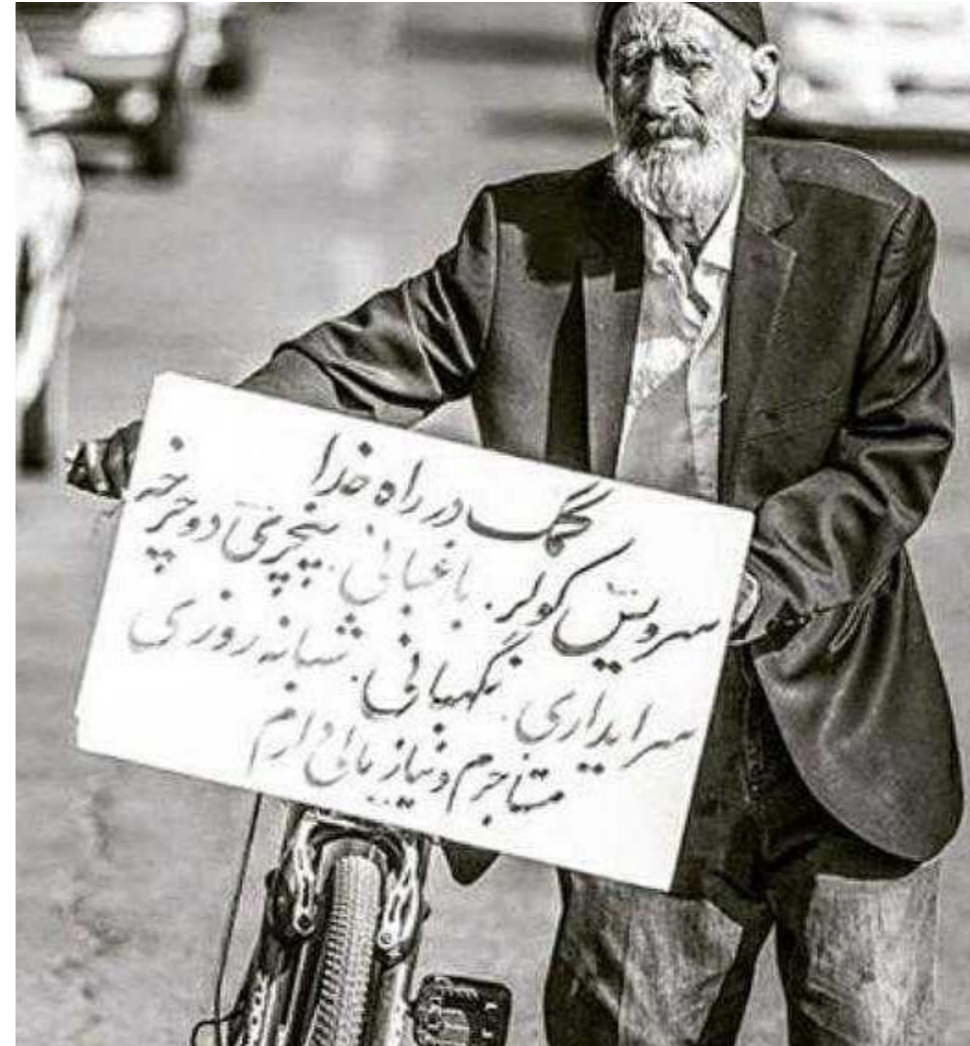 کمک در راه خدا
سرویس کولر. باغبانی. پنچرگیری دوچرخه
سرایداری. نگهبانی. شبانه روزی
مستاجرم و نیاز مالی دارم